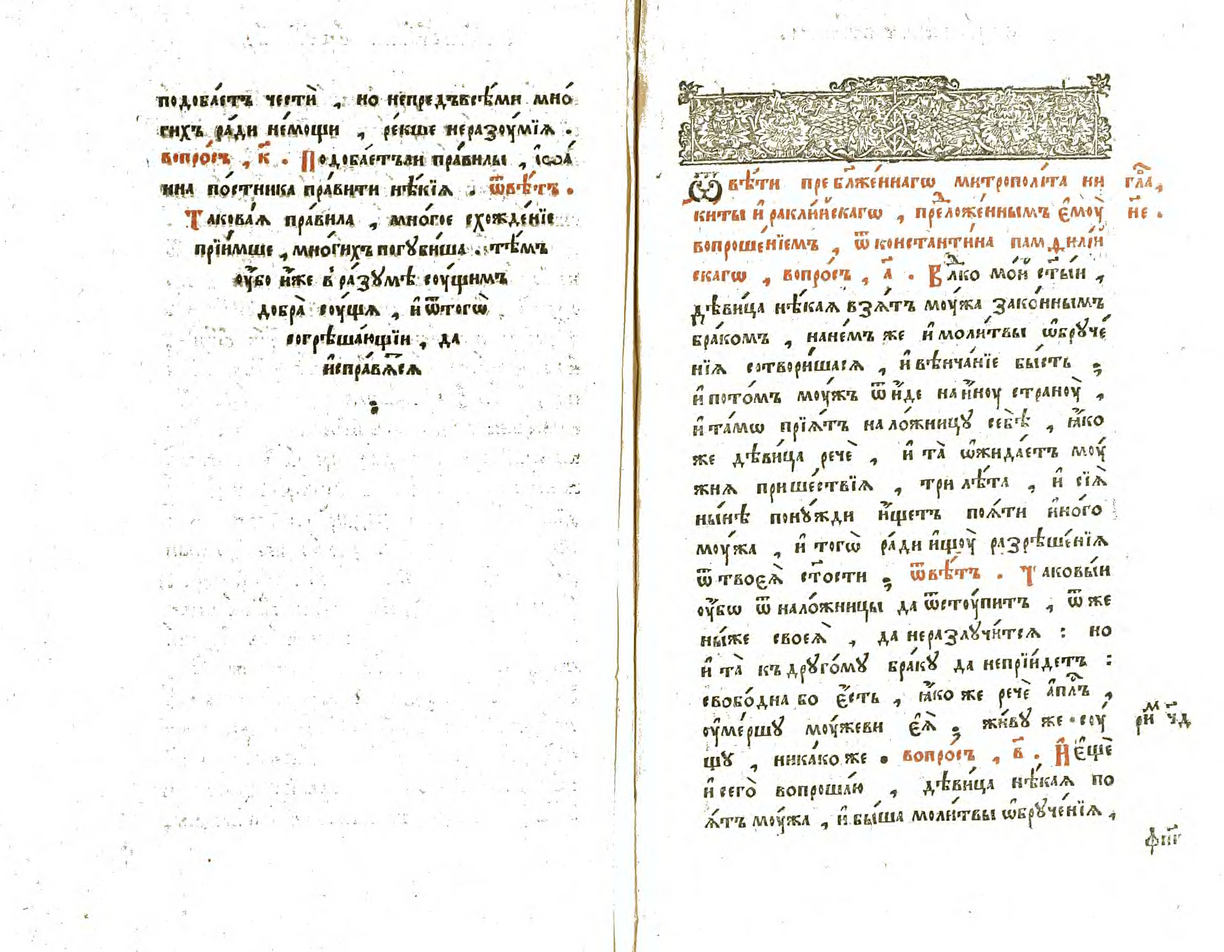 подоба́етъ че́сти̑ , но непредъвсѣ́ми мно́
гихъ ра́ди не́мощи , ре́кше неразꙋ́мїѧ .
вопро́съ , к҃ . Подоба́етъли пра́вилы , і҆ѡа́
нна по́стника пра́вити нѣ́кїѧ . ѿвѣ́тъ .
Такова́ѧ пра́вила , мно́гое схожде́нїе
прїи́мше , мно́гихъ погꙋби́ша . тѣ́мъ
ᲂу҆́бо и҆́же в̾ ра́зꙋмѣ сꙋ́щимъ
добра̀ сꙋ́щѧ , и҆ ѿтогѡ̀
согрѣша́ющїи , да
и҆спра́вѧ́тсѧ
Ѿвѣ́ти пребл҃же́ннагѡ митрополи́та ни
ки́ты и҆ракли́йскагѡ , предложе́ннымъ є҆мꙋ̀
вопроше́нїемъ , ѿ константи́на памѳилі́и
скагѡ , вопро́съ , а҃ . Влⷣко мо́и ст҃ы́и ,
дѣви́ца нѣ́каѧ взѧ́тъ мꙋ́жа зако́ннымъ
бра́комъ , нане́мъ же и҆ моли́твы ѡ҆брꙋче́
нїѧ сотвори́шасѧ , и҆ вѣнча́нїе бы́сть ;
и҆ пото́мъ мꙋ́жъ ѿи́де наи҆́нꙋ странꙋ̀ ,
и҆ та́мѡ прїѧ́тъ нало́жницꙋ себѣ̀ , ꙗ҆́ко
же дѣви́ца речѐ , и҆ та̀ ѡ҆жида́етъ мꙋ́
жнѧ прише́ствїѧ , три лѣ́та , и҆ сїѧ̀
ны́нѣ понꙋ́жди и҆́щетъ поѧ́ти и҆но́го
мꙋ́жа , и҆ тогѡ̀ ра́ди и҆щꙋ̀ разрѣше́нїѧ
ѿ твоеѧ̀ ст҃ости ; ѿвѣ́тъ . Таковы́и
ᲂу҆́бѡ ѿ нало́жницы да ѿстꙋ́питъ , ѿ же
ны́же своеѧ̀ , да неразлꙋчи́тсѧ : но
и҆ та̀ къ дрꙋго́мꙋ бра́кꙋ да непрїи́детъ :
свобо́дна бо є҆́сть , ꙗ҆́ко же речѐ а҆пⷭ҇лъ ,
ᲂу҆ме́ршꙋ мꙋ́жеви є҆ѧ̀ ; жи́вꙋ же сꙋ́
щꙋ , ника́ко же . вопро́съ , в҃ . И҆ є҆щѐ
и҆ сего̀ вопроша́ю , дѣви́ца нѣ́каѧ по
ѧ́тъ мꙋ́жа , и҆ бы́ша моли́твы ѡ҆брꙋче́нїѧ ,
гла҃,
н҃е .